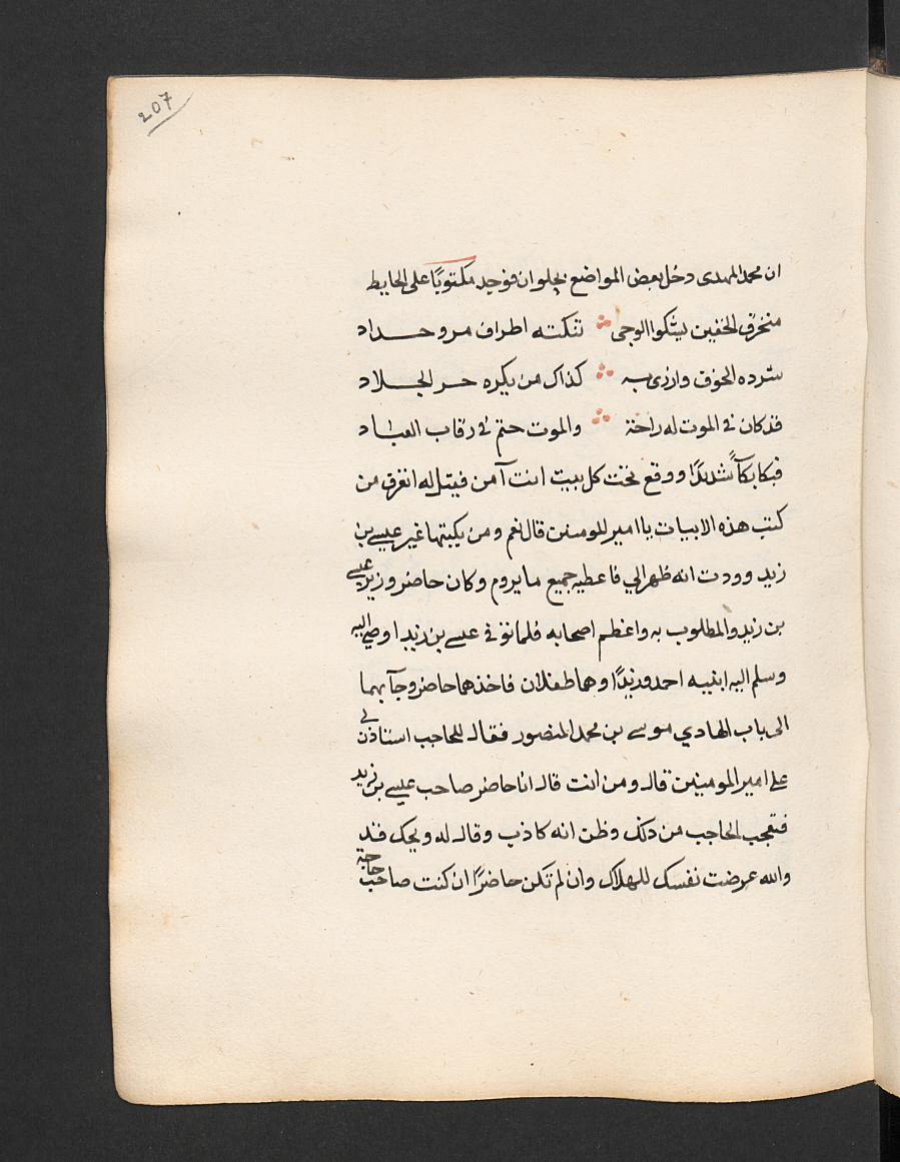 207
ان محمد المهدى دخل بعض المواضع بحلوان فوجد مكتوبًا على الحايط
منخرق الخفين يشكوا الوجى تنكته اطراف مرو حداد
شرده الخوف وازرى به كذاك من يكره حر الجلاد
قد كان في الموت له راحة والموت حتم في رقاب العباد
فبكا بكآً شديدًا ووقع تحت كل بيت انت آمن فقيل له اتعرف من
كتب هذه الابيات يا امير المومنين قال نعم ومن يكتبها غير عيسى بن
زيد وودت انه ظهر الي فاعطيه جميع ما يروم وكان حاضر وزير عيسى
بن زيد والمطلوب به واعظم اصحابه فلما توفى عيسى بن زيد اوصى اليه
وسلم اليه ابنيه احمد وزيدًا وهما طفلان فاخذهما حاضر وجآ بهما
الى باب الهادي موسى بن محمد المنصور فقال للحاجب استاذن لي
على امير المومنين قال ومن انت قال انا حاضر صاحب عيسى بن زيد
فتعجب الحاجب من ذلك وظن انه كاذب وقال له ويحك قد
والله عرضت نفسك للهلاك وان لم تكن حاضرًا ان كنت صاحب حاجة